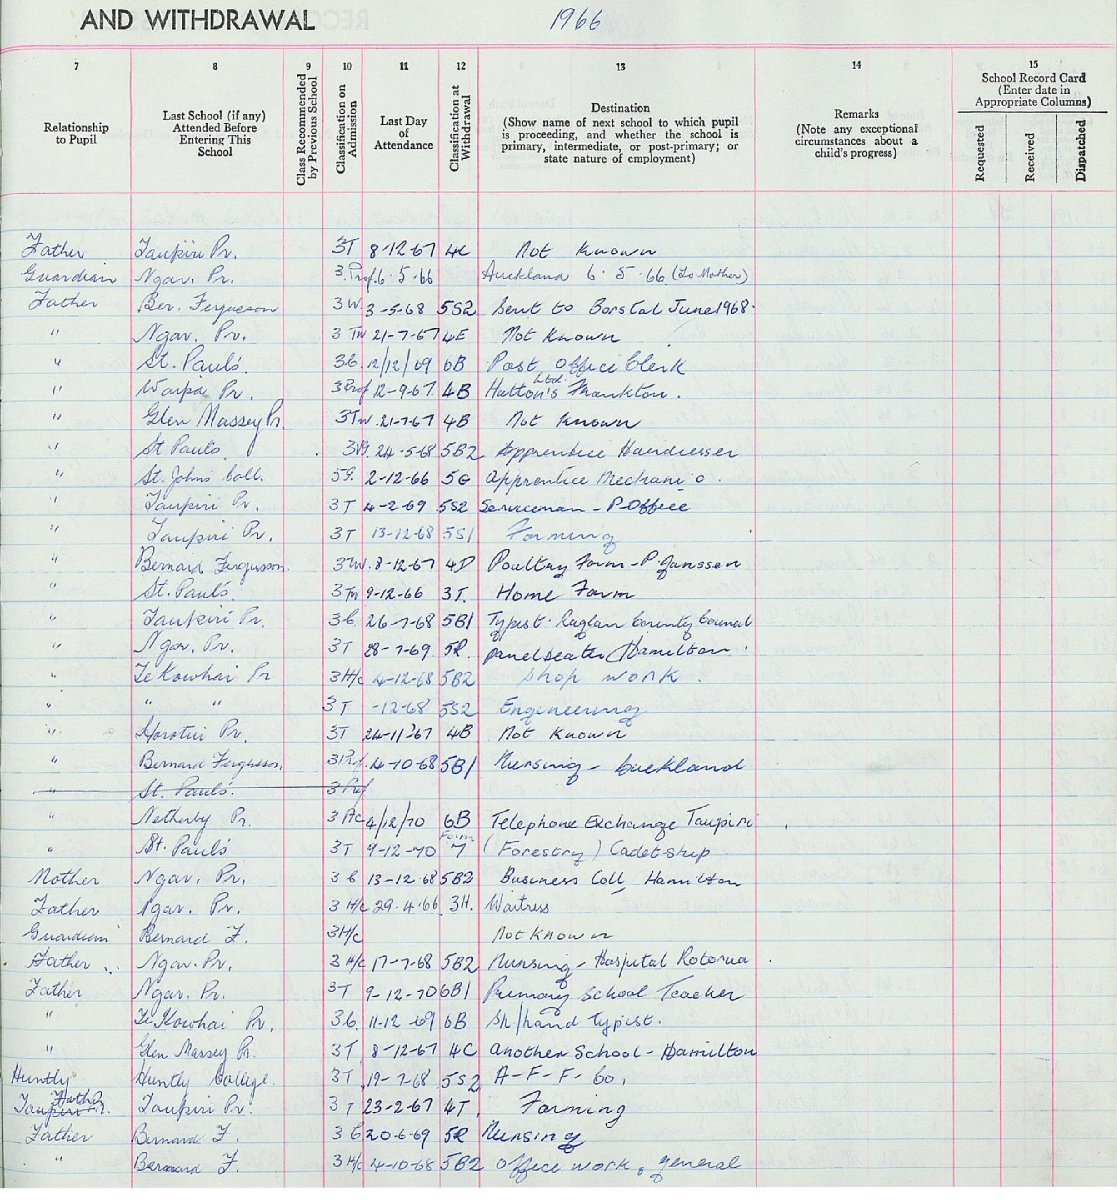 AND WITHDRAWAL 1966
7 8 9 10 11 12 13 14 15
Relationship to Pupil
Last School (if any) Attended Before Entering This School
Class Recommended by Previous School
Classification on Admission
Last Day of Attendance
Classification at Withdrawal
Destination (Show name of next school to which pupil is proceeding, and whether the school is primary, intermediate, or post-primary; or state nature of employment)
Remarks (Note any exceptional circumstances about a child's progress)
School Record Card (Enter date in Appropriate Columns)
Requested Received Dispatched
Father Taupiri Pr. 3T 8-12-67 4C Not Known
Guardian Ngar. Pr. 3.Prof. 6.5.66 Auckland 6.5.66 (To Mother)
Father Ber. Fergusson 3W 3-5-68 5S2 Sent to Borstal June 1968.
" Ngar. Pr. 21-7-67 4E Not Known
" St. Paul's. 12/12/69 6B Post Office Clerk
" Waipa Pr. 3Prof 12-9-67 4B Hutton's Ltd. Frankton.
" Glen Massey Pr. 3Tw. 21-7-67 4B Not Known
" St Pauls. 24.5-68 5B2 Apprentice Hairdresser
" St. Johns Coll. 5G. 2-12-66 5G Apprentice Mechanic.
" Taupiri Pr. 3T 4-2-69 5S2 Serviceman - P.Office
" Taupiri Pr. 3T 13-12-68 5S1 Farming
" Bernard Fergusson. 3W. 8-12-67 4D Poultry Farm - P. Janssen
" St. Paul's 9-12-66 3T. Home Farm
" Taupiri Pr. 26-7-68 5B1 Typist. Raglan County Council
" Ngar. Pr. 3T 28-7-69 5R. panelbeater Hamilton.
" Te Kowhai Pr 3H/c 4-12-68 5B2 Shop work.
" " " 3T -12-68 5S2 Engineering
" Horotiu Pr. 3T 24-11-67 4B Not Known
" Bernard Fergusson. 3Prof. 4-10-68 5B1 Nursing - Auckland
" St. Paul's. 3 Prof
" Netherby Pr. 4/12/70 6B Telephone Exchange Taupiri
" St. Paul's 3T 9-12-70 Form 7 (Forestry) Cadetship
Mother Ngar. Pr. 13-12-68 5B2 Business Coll, Hamilton
Father Ngar. Pr. 3 H/c 29.4.66 3H. Waitress
Guardian Bernard F. 3H/c Not Known
Father Ngar. Pr. 3 H/c 17-7-68 5B2 Nursing - Hospital Rotorua
Father Ngar. Pr. 3T 9-12-70 6B1 Primary School Teacher
" Te Kowhai Pr. 11-12-69 6B Sh/hand typist.
" Glen Massey Pr. 3T 8-12-67 4C another School - Hamilton
Huntly Huntly College. 3T 19-7-68 5S2 A-F-F- Co.
Taupiri Pr. Father Taupiri Pr. 3T 23-2-67 4T. Farming
Father Bernard F. 20-6-69 5R Nursing
" Bernard F. 3 H/c 4-10-68 5B2 Office work, general